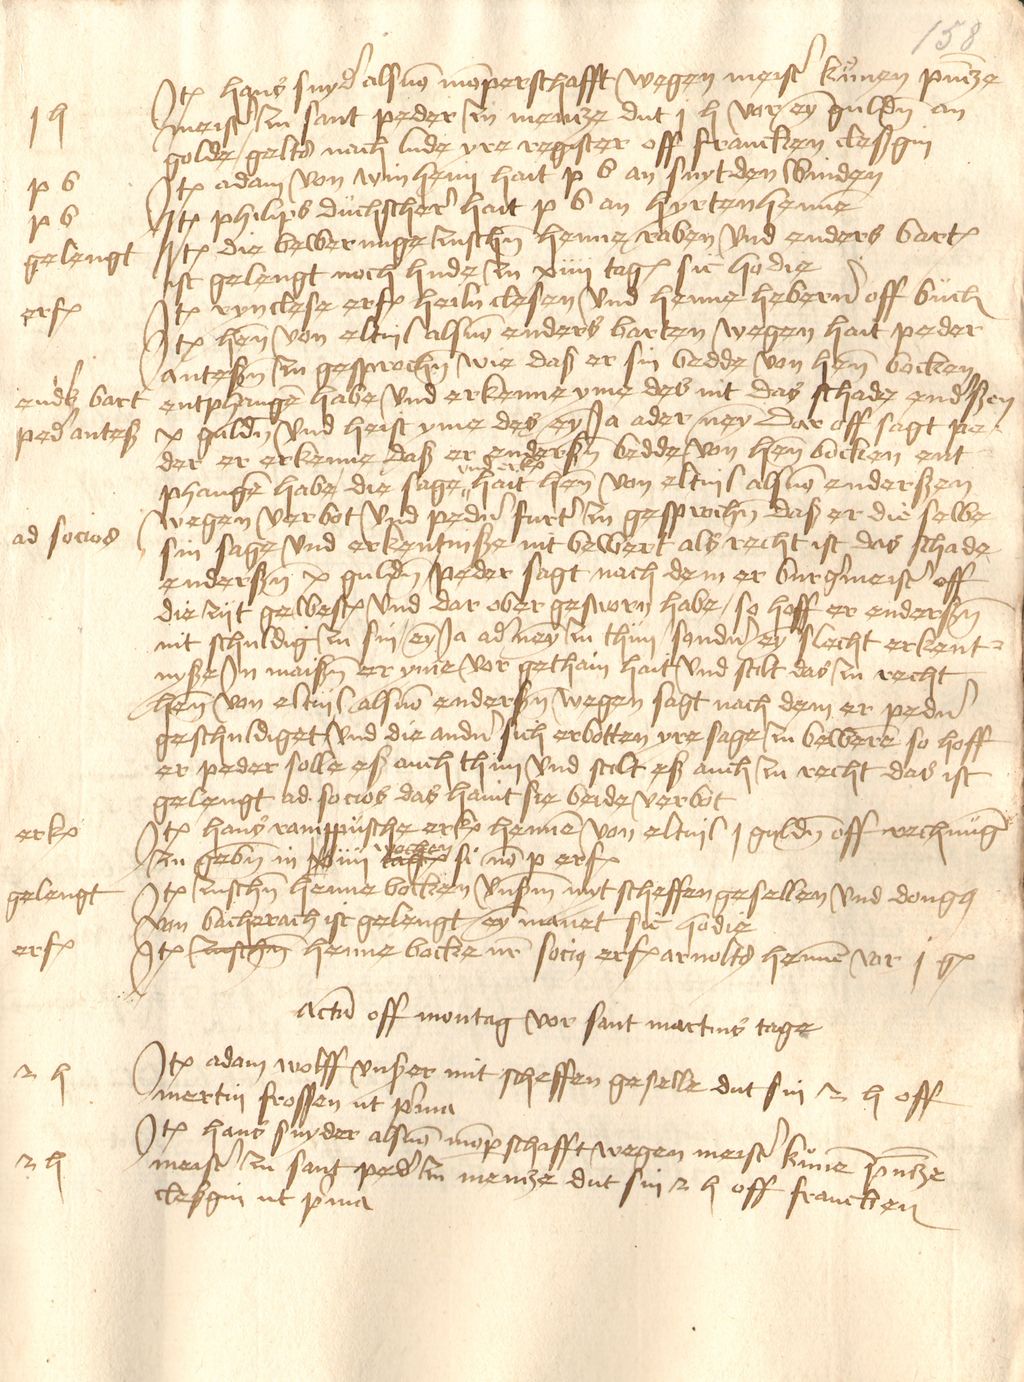 158
Jtem hans snyder als von momperschafft wegen meister kunen presentze
j h meister zu sant peder zu mentze dut j h vor ey guldn an
golde gelts nach lude yre register off francken clesgin
p b Jtem adam von winheim hait p b an snytdenwinden
p b Jtem philips duchscherer hait p b an hyrtenhenne
gelengt Jtem die beweringe zuschn henne raben vnd enders barten
ist gelengt noch hude zu xiiii tagen sic hodie
erf Jtem rynclese erf heiln clesen vnd henne hebern off buch
Jtem hen von eltuil als von enders barten wegen hait peder
antesn zu gesprochn wie daß er sin bedde von hen bocken
endß bart entphangen habe vnd erkenne yme des nit das schade endßen
ped anteß x guldn vnd heist yme des ey Ja ader ney Dar off sagt pe
der er erkenne daß er endersn bedde von hen bocken ent
phangen habe die sage vnd erk hait hen von eltuil als von enderßen
ad socios wegen verbot vnd pedn furter zu gesprochn daß er die selbe
sin sage vnd erkentniße nit bewert als recht ist das schade
endersn x guldn peder sagt nach dem er burgmeister off
die zijt gewest vnd dar ober gesworn habe so hoff er endersn
nit schuldig zu sin ey Ja ader ney zu thun sonder ey slecht erkent
nyße Jn maißen er yme vor gethain hait vnd stilt das zu recht
hen von eltuil als von endersn wegen sagt nach dem er pedn
geschuldiget vnd die ander sich erbotten yre sage zu beweren so hoff
er peder solle eß auch thun vnd stilt eß auch zu recht das ist
gelengt ad socios das haint sie beide verbot
erk Jtem hans rampusche erk hennen von eltuil j guldn off rechnung
zu gebn in xiiii tagen wochen si non p erf
gelengt Jtem zuschn henne bocken vnßerm mytscheffengesellen vnd dongs
von bacherach ist gelengt ey manet sic hodie
erf Jtem zuschn henne bocke nr socius erf arnolts hennen vor j g
Actum off montag vor sant martins tage
2 h Jtem adam wolff vnßer mit scheffen geselle dut sin 2 h off
mertin frossen ut prima
Jtem hans snyder als von mompschafft wegen meister kunen presentze
2 h meister zu sant peder zu mentze dut sin 2 h off francken
clesgin ut prima